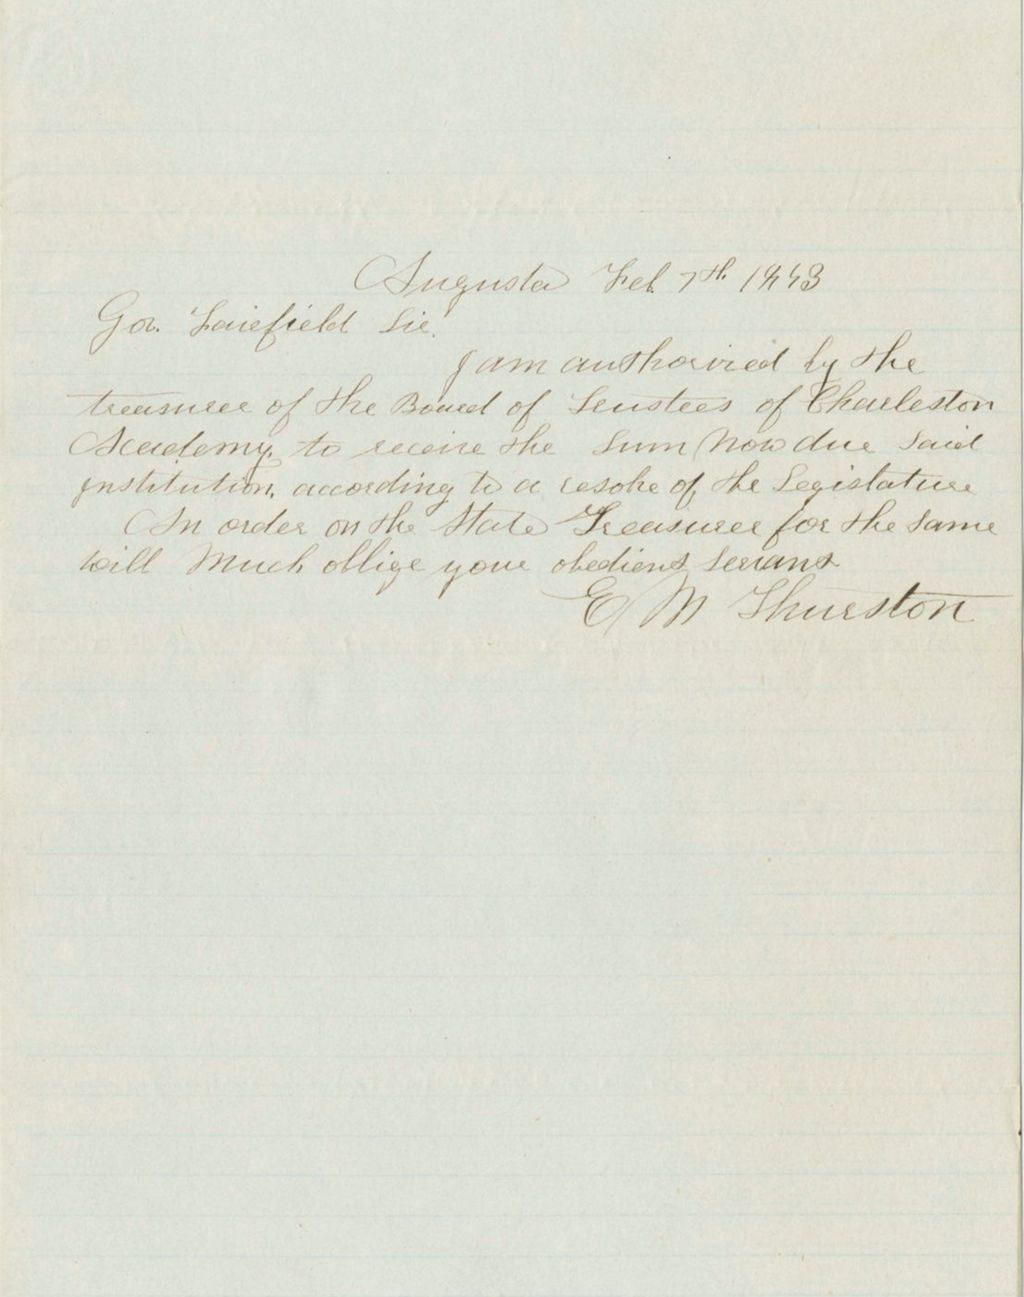 Augusta Feb. 7th 1843
Gov. Fairfield Sir.
I am authorized by the
treasurer of the Board of Trustees of Charleston
Academy, to receive the sum now due said
institution, according to a resolve of the Legislature
An order on the State Treasurer for the same
will much oblige your obedient servant
E M Thurston